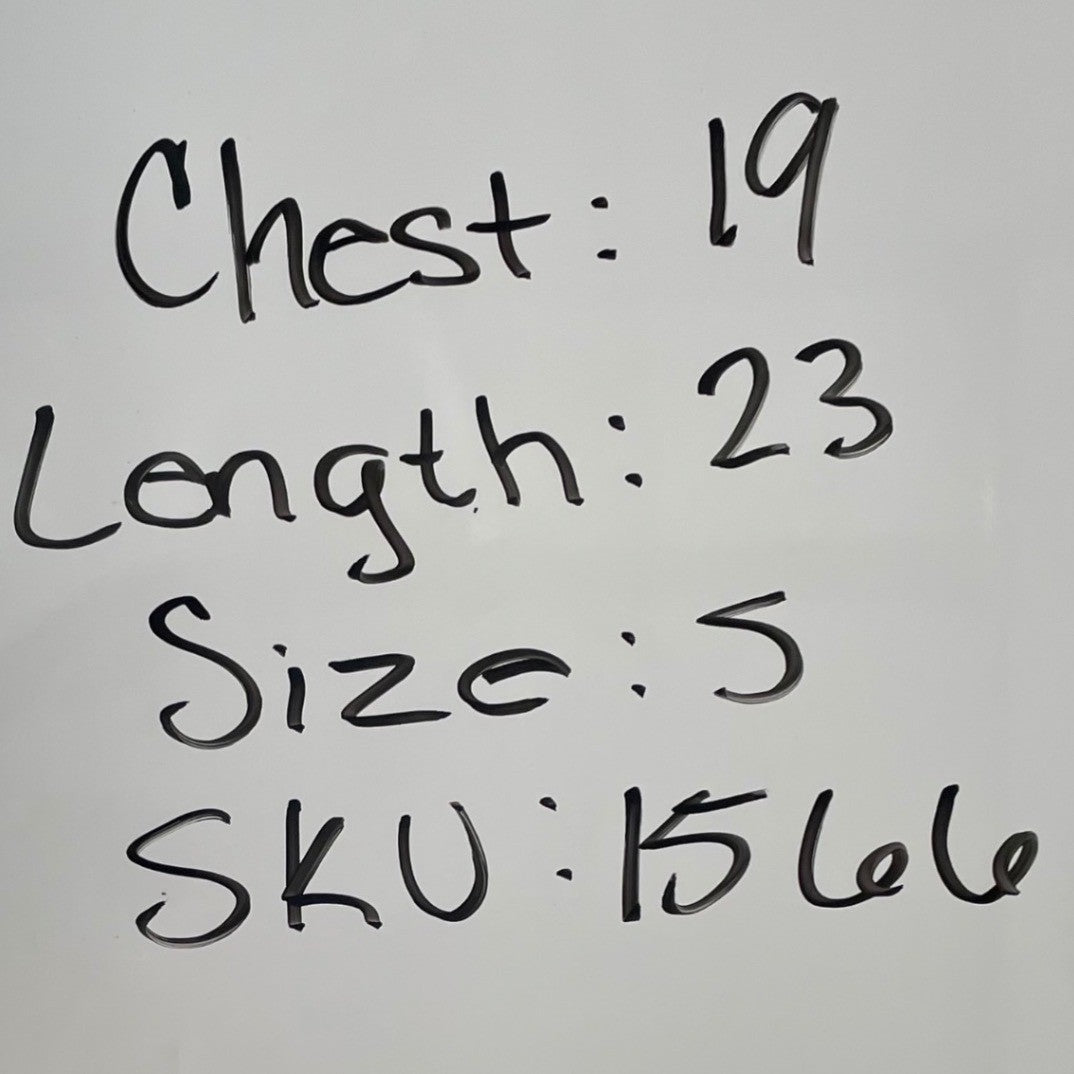 Chest: 19
Length: 23
Size: S
SKU: 1566